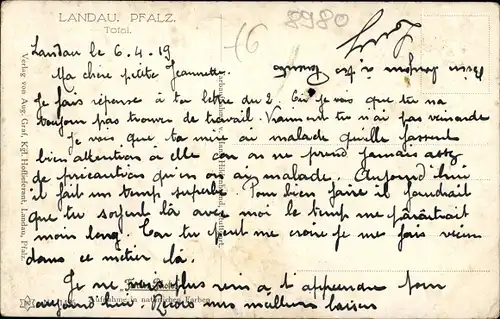 LANDAU. PFALZ.
Total.
8980
Landau le 6.4.19
Ma chère petite Jeannette.
Je fais réponse à ta lettre du 2. Où je vois que tu na
toujour pas trouver de travail. Vraiment tu n'ai pas veinarde
Je vois que ta mère ai malade quelle fassent
bien attention à elle car on ne prend jamais assez
de précaution qu'en on ai malade. Aujourd'hui
il fait un temp superbe Pour bien faire il faudrait
que tu soient là avec moi le temp me paraîtrait
moin long. Car tu peut me croire je me fais vieux
dans ce métier là.
Je ne vois plus rien à t'apprendre pour
aujourd'hui. Reçois mes meilleurs baisers
Verlag von Aug. Graf, Kgl. Hoflieferant, Landau, Pfalz.
Aufnahme in natürlichen Farben